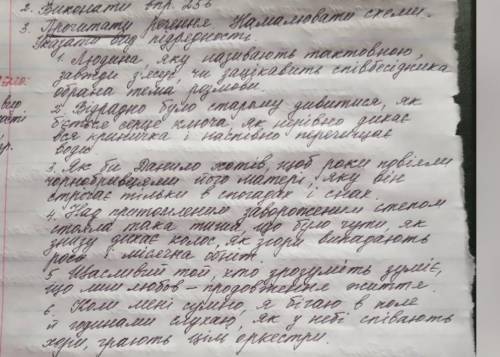 2. Виконати впр. 236
3. Прочитати речення. Намалювати схеми.
Указати вид підрядності.
1. Людина, яку називають тактовною,
завжди з'ясує, чи зацікавить співбесідника
обрана тема розмови.
2. Відрадно було старому дивитися, як
б'ється серце ключа, як нерівно дихає
вся криничка і настирно перегчищає
воду.
3. Як би Данило хотів, щоб роки повіяли
чорнобривцями його матері, яку він
стрічає тільки в спогадах і снах.
4. Над притомленим завороженим степом
стояла така тиша, що було чути, як
знизу дихає колос, як згори випадають
роси і місячна обніж.
5. Щасливий той, хто зрозуміть зуміє,
що мить любов – продовження життя.
6. Коли мені сумно, я бігаю в поле
й годинами слухаю, як у небі співають
хори, грають цілі оркестри.